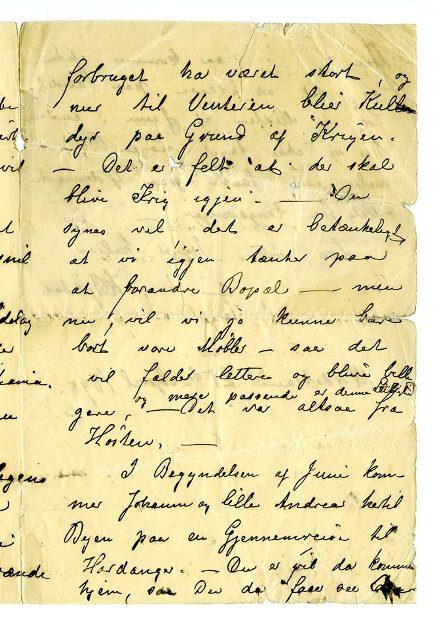 forbruget ha været stort, og
nu til Vinteren blir Kullene
dyr paa Grund af Krigen.
— Det er felt at der skal
blive Krig igjen. — Du
synes vel det er betænkeligt
at vi igjen tænker paa
at forandre Bopæl — men
nu, vil vi jo kunne bære
bort vore Møbler — saa det
vil falder lettere og blive billi-
og mere passende er denne
gere, — Det var altsaa fra
Høsten. —
I Begyndelsen af Juni kom-
mer Johann og lille Andrea hertil
Byen paa en Gjennemreise til
Hardanger. — Du er vel da kommen
hjem, saa Du da faar see